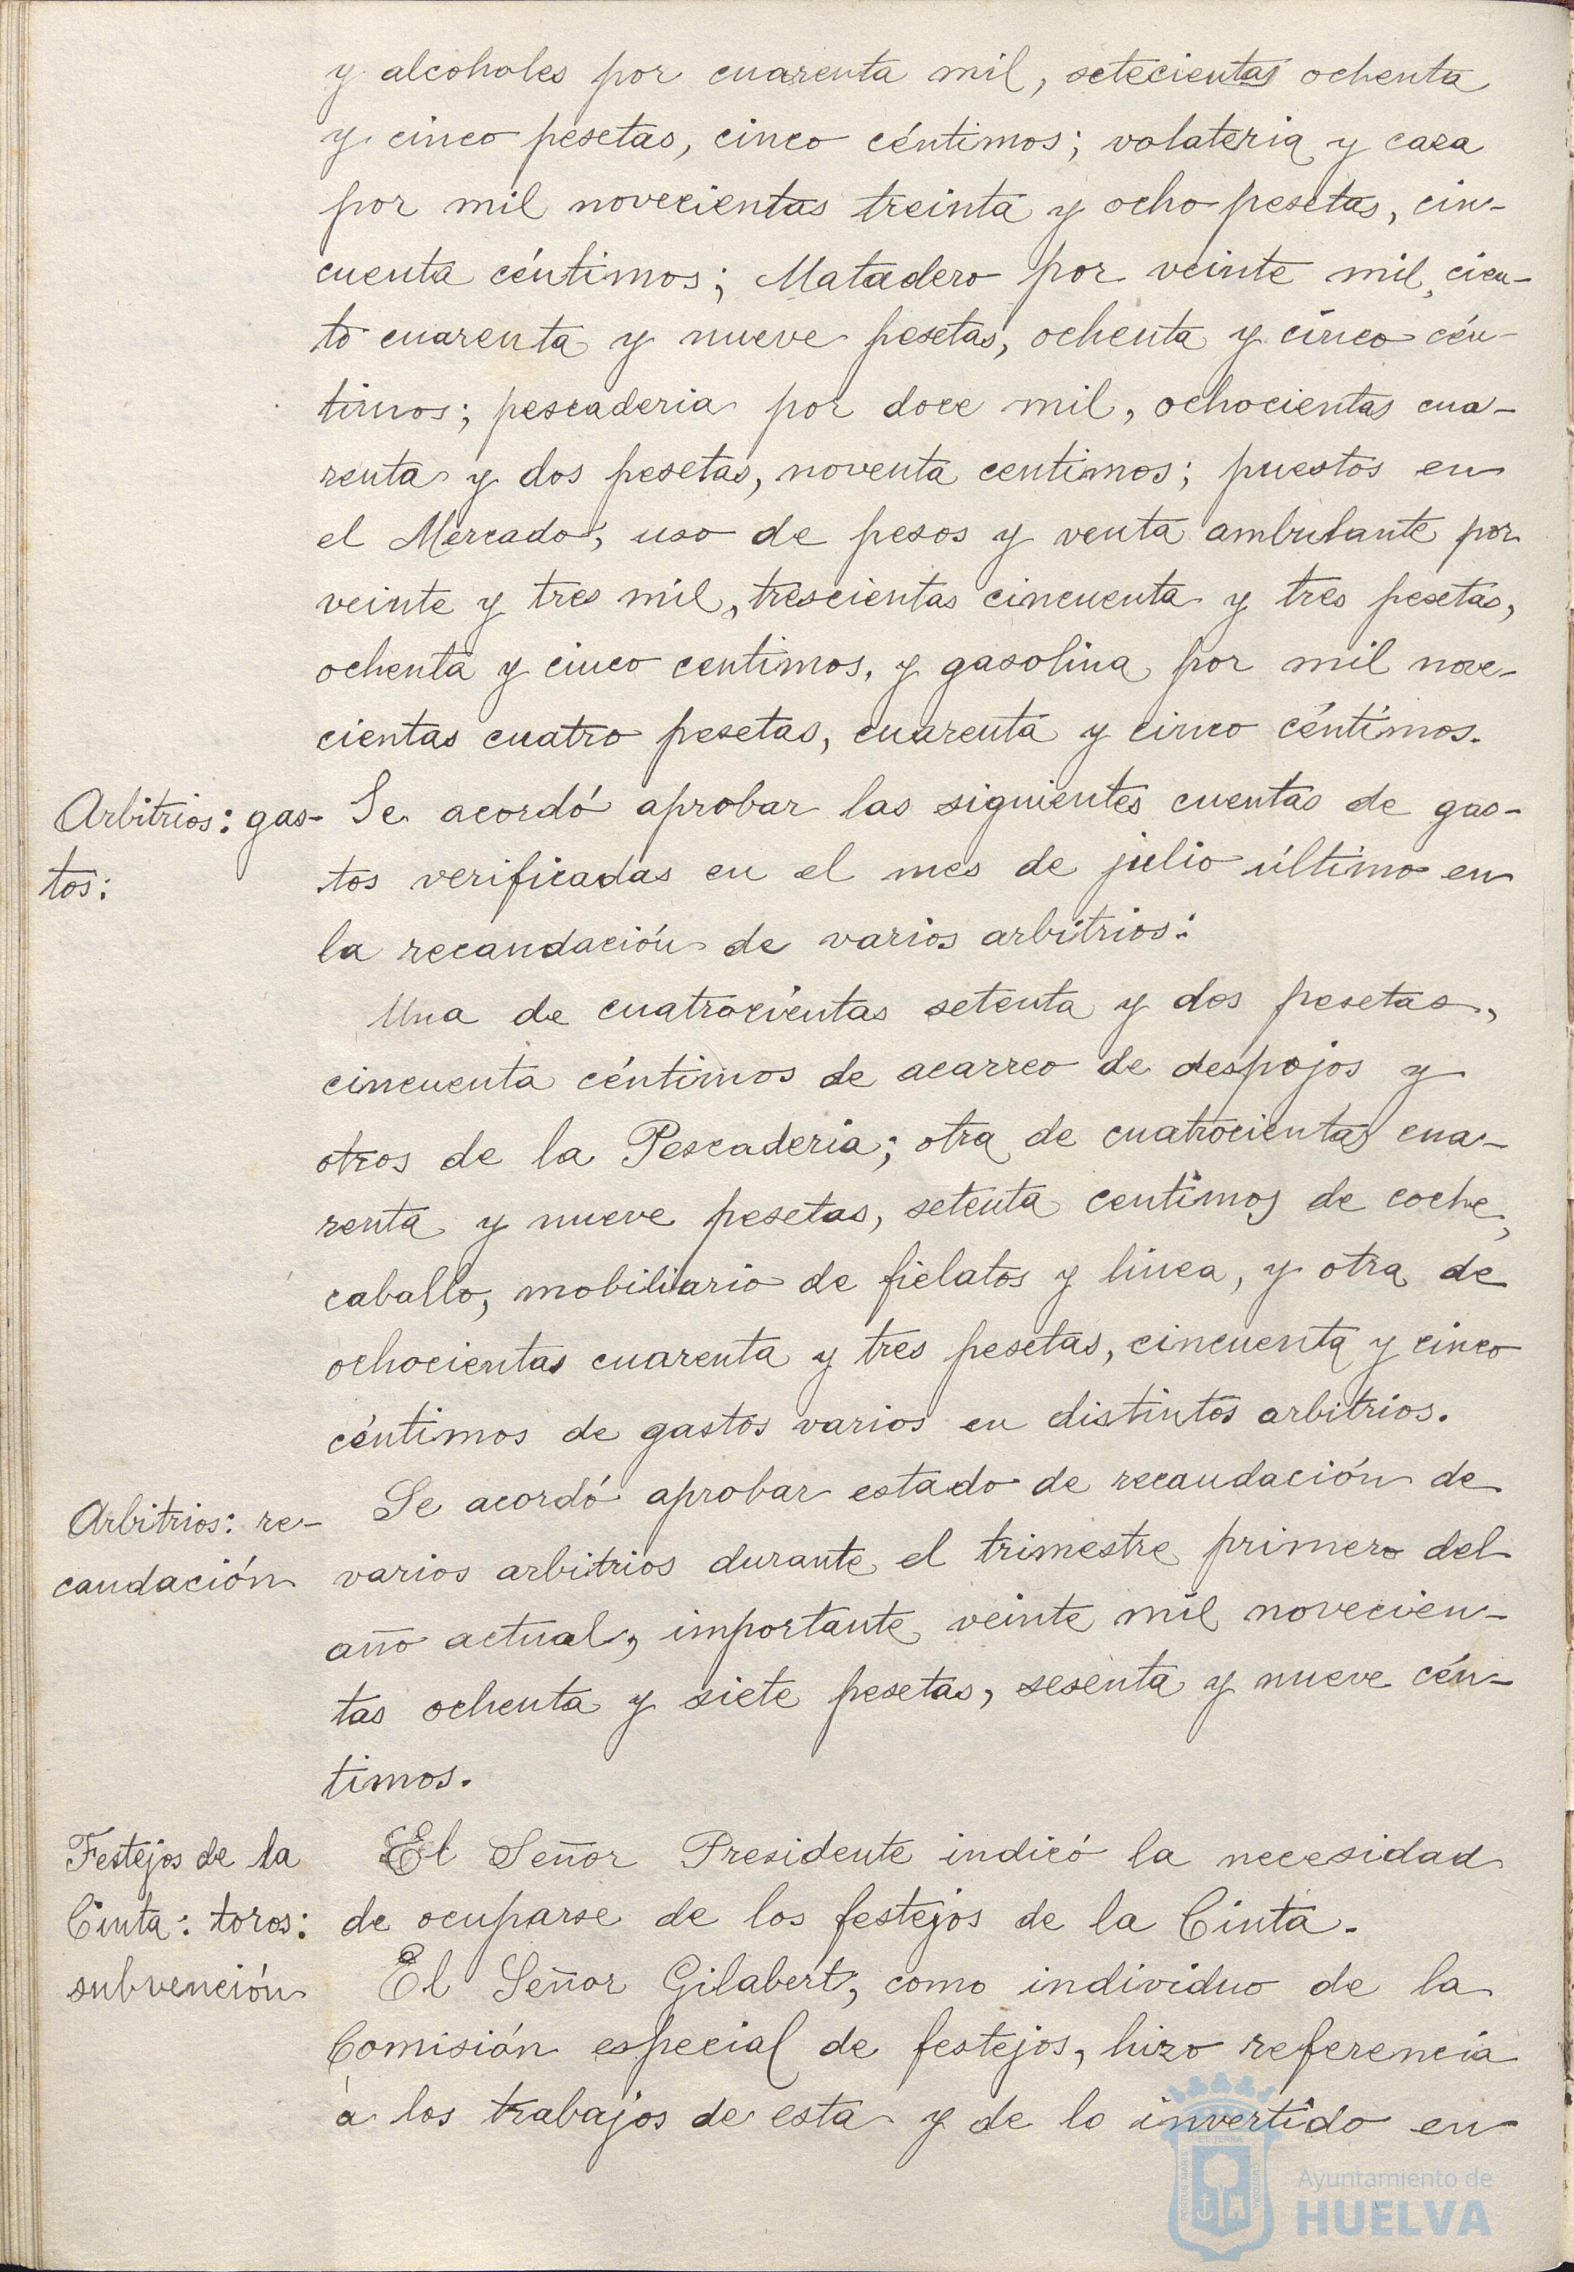 y alcoholes por cuarenta mil, setecientas ochenta
y cinco pesetas, cinco céntimos; volateria y caza
por mil novecientas treinta y ocho pesetas, cin-
cuenta céntimos; Matadero por veinte mil, cien-
to cuarenta y nueve pesetas, ochenta y cinco cén-
timos; pescaderia por doce mil, ochocientas cua-
renta y dos pesetas, noventa centimos; puestos en
el Mercado, uso de pesos y venta ambulante por
veinte y tres mil, trescientas cincuenta y tres pesetas,
ochenta y cinco centimos, y gasolina por mil nove-
cientas cuatro pesetas, cuarenta y cinco céntimos.
Arbitrios: gas-
tos:
Se acordó aprobar las siguientes cuentas de gas-
tos verificadas en el mes de julio último en
la recaudación de varios arbitrios:
Una de cuatrocientas setenta y dos pesetas,
cincuenta céntimos de acarreo de despojos y
otros de la Pescaderia; otra de cuatrocientas cua-
renta y nueve pesetas, setenta centimos de coche,
caballo, mobiliario de fielatos y linea, y otra de
ochocientas cuarenta y tres pesetas, cincuenta y cinco
céntimos de gastos varios en distintos arbitrios.
Arbitrios: re-
caudación
Se acordó aprobar estado de recaudación de
varios arbitrios durante el trimestre primero del
año actual, importante veinte mil novecien-
tas ochenta y siete pesetas, sesenta y nueve cén-
timos.
Festejos de la
Cinta: toros:
subvención
El Señor Presidente indicó la necesidad
de ocuparse de los festejos de la Cinta.
El Señor Gilabert, como individuo de la
Comisión especial de festejos, hizo referencia
a los trabajos de esta y de lo invertido en
Ayuntamiento de
HUELVA